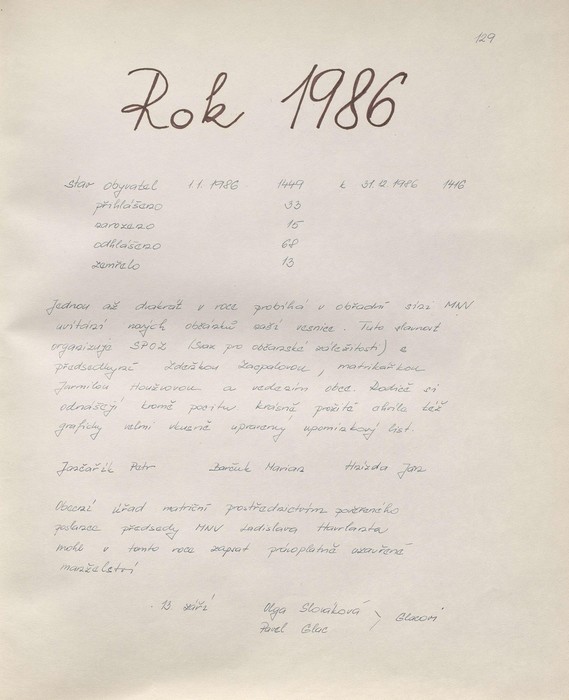 129
Rok 1986
stav obyvatel 1.1.1986 1449 k 31.12.1986 1416
přihlášeno 33
narozeno 15
odhlášeno 68
zemřelo 13
Jednou až dvakrát v roce probíhá v obřadní síni MNV
uvítání nových občánků naší vesnice. Tuto slavnost
organizuje SPOZ (Sbor pro občanské záležitosti) s
předsedkyní Zdeňkou Zaoralovou, matrikářkou
Jarmilou Houžvovou a vedením obce. Rodiče si
odnášejí kromě pocitu krásně prožité chvíle též
graficky velmi vkusně upravený upomínkový list.
Petr Marian Hnízda Jan
Obecní úřad matriční prostřednictvím pověřeného
poslance předsedy MNV Ladislava
mohl v tomto roce zapsat právoplatně uzavřené
manželství
13. září Olga Slováková
Pavel Glac Glacovi